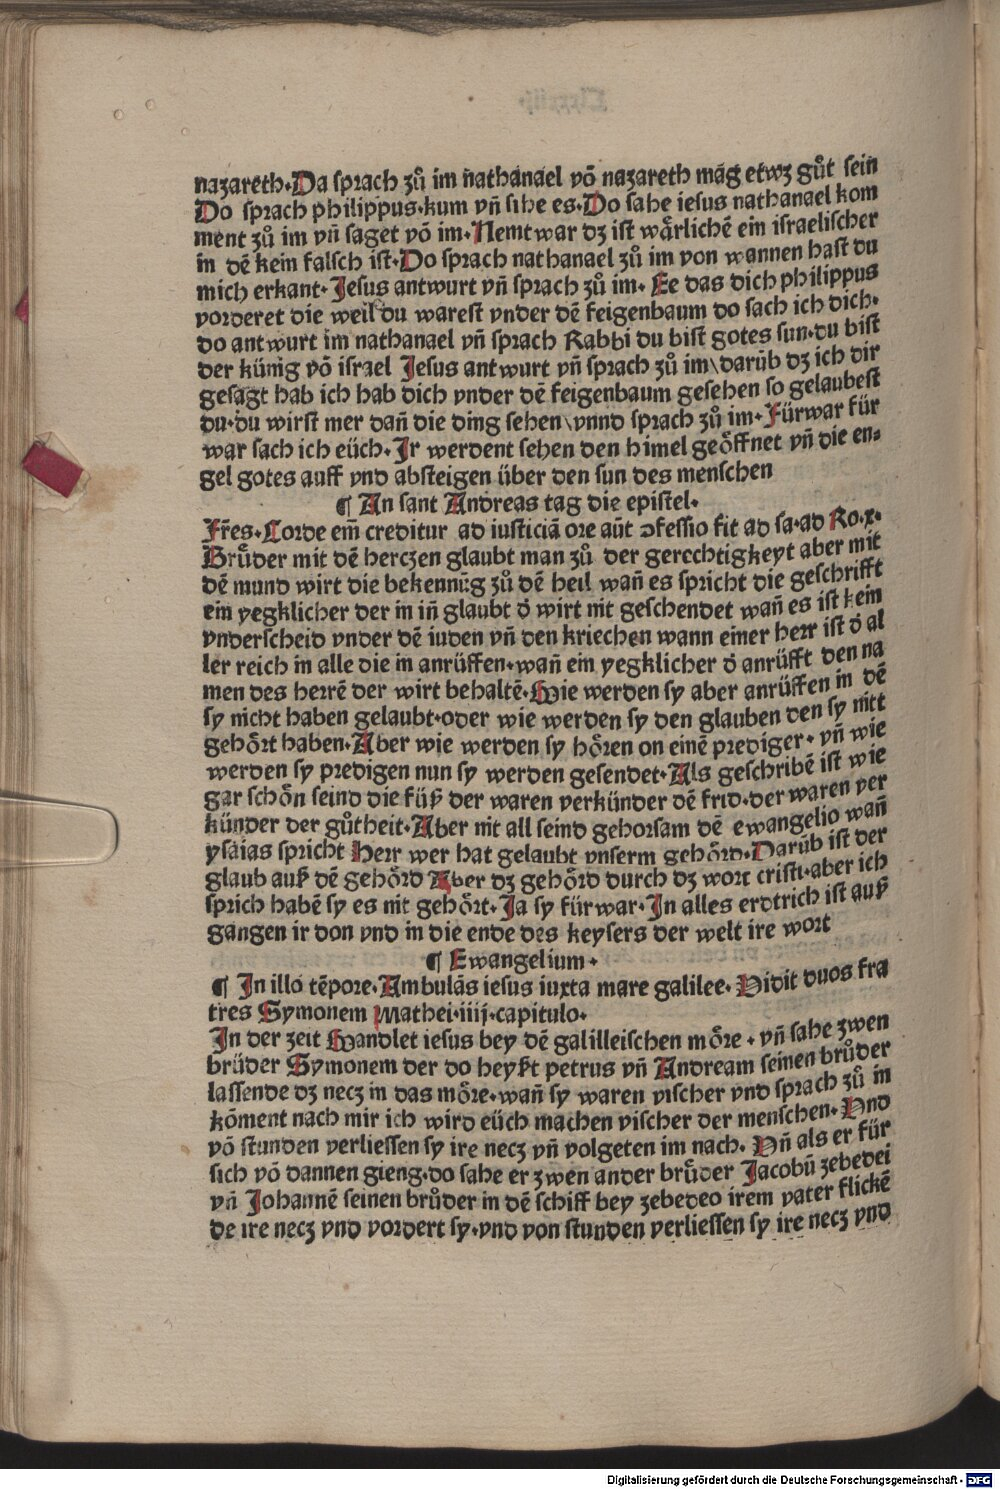 nazareth·Da sprach zů im nathanael võ nazareth mag etwz gůt sein
Do sprach philippus·kum vñ sihe es·Do sahe iesus nathanael kom
ment zů im vñ saget võ im·Nemt war dz ist wårlichẽ ein israelischer
in dẽ kein falsch ist·Do sprach nathanael zů im von wannen hast du
mich erkant·Jesus antwurt vñ sprach zů im·Ee das dich philippus
vorderet die weil du warest vnder dẽ feigenbaum do sach ich dich·
do antwurt im nathanael vñ sprach Rabbi du bist gotes sun·du bist
der künig võ israel Jesus antwurt vñ sprach zů im\darüb dz ich dir
gesagt hab ich hab dich vnder dẽ feigenbaum gesehen so gelaubest
du·du wirst mer dañ die ding sehen\vnnd sprach zů im·Fürwar für
war sach ich eüch·Ir werdent sehen den himel geöffnet vñ die en⸗
gel gotes auff vnd absteigen über den sun des menschen
¶ An sant Andreas tag die epistel·
Fr̃es·Corde em̃ creditur ad iusticiã ore aũt ɔfessio fit ad sa·ad Ro.x·
Brůder mit dẽ herczen glaubt man zů der gerechtigkeyt aber mit
dẽ mund wirt die bekennũg zů dẽ heil wañ es spricht die geschrifft
ein yegklicher der in iñ glaubt d̾ wirt nit geschendet wañ es ist kein
vnderscheid vnder dẽ iuden vñ den kriechen wann einer herr ist d̾ al
ler reich in alle die in anrüffen·wañ ein yegklicher d̾ anrüfft den na
men des herrẽ der wirt behaltẽ·Wie werden sy aber anrüffen in dẽ
sy nicht haben gelaubt·oder wie werden sy den glauben den sy nitt
gehört haben·Aber wie werden sy hören on einẽ prediger·vñ wie
werden sy predigen nun sy werden gesendet·Als geschribẽ ist wie
gar schön seind die füß der waren verkünder dẽ frid·der waren ver
künder der gůtheit·Aber nit all seind gehorsam dẽ ewangelio wañ
ysaias spricht Herr wer hat gelaubt vnserm gehörd·Darüb ist der
glaub auß dẽ gehörd Aber dz gehörd durch dz wort cristi·aber ich
sprich habẽ sy es nit gehört·Ja sy fürwar·In alles erdtrich ist auß
gangen ir don vnd in die ende des keysers der welt ire wort
¶ Ewangelium·
¶ In illo tẽpore·Ambulãs iesus iuxta mare galilee·Vidit duos fra
tres Symonem Mathei·iiij·capitulo·
In der zeit Wandlet iesus bey dẽ galilleischen möre·vñ sahe zwen
brüder Symonem der do heyßt petrus vñ Andream seinen brůder
lassende dz necz in das möre·wañ sy waren vischer vnd sprach zů in
kõment nach mir ich wird eüch machen vischer der menschen·Vnd
võ stunden verliessen sy ire necz vñ volgeten im nach·Vñ als er für
sich võ dannen gieng·do sahe er zwen ander brüder Jacobũ zebedei
vñ Johannẽ seinen brůder in dẽ schiff bey zebedeo irem vater flickẽ
de ire necz vnd vordert sy·vnd von stunden verliessen sy ire necz vnd
Digitalisierung gefördert durch die Deutsche Forschungsgemeinschaft - DFG